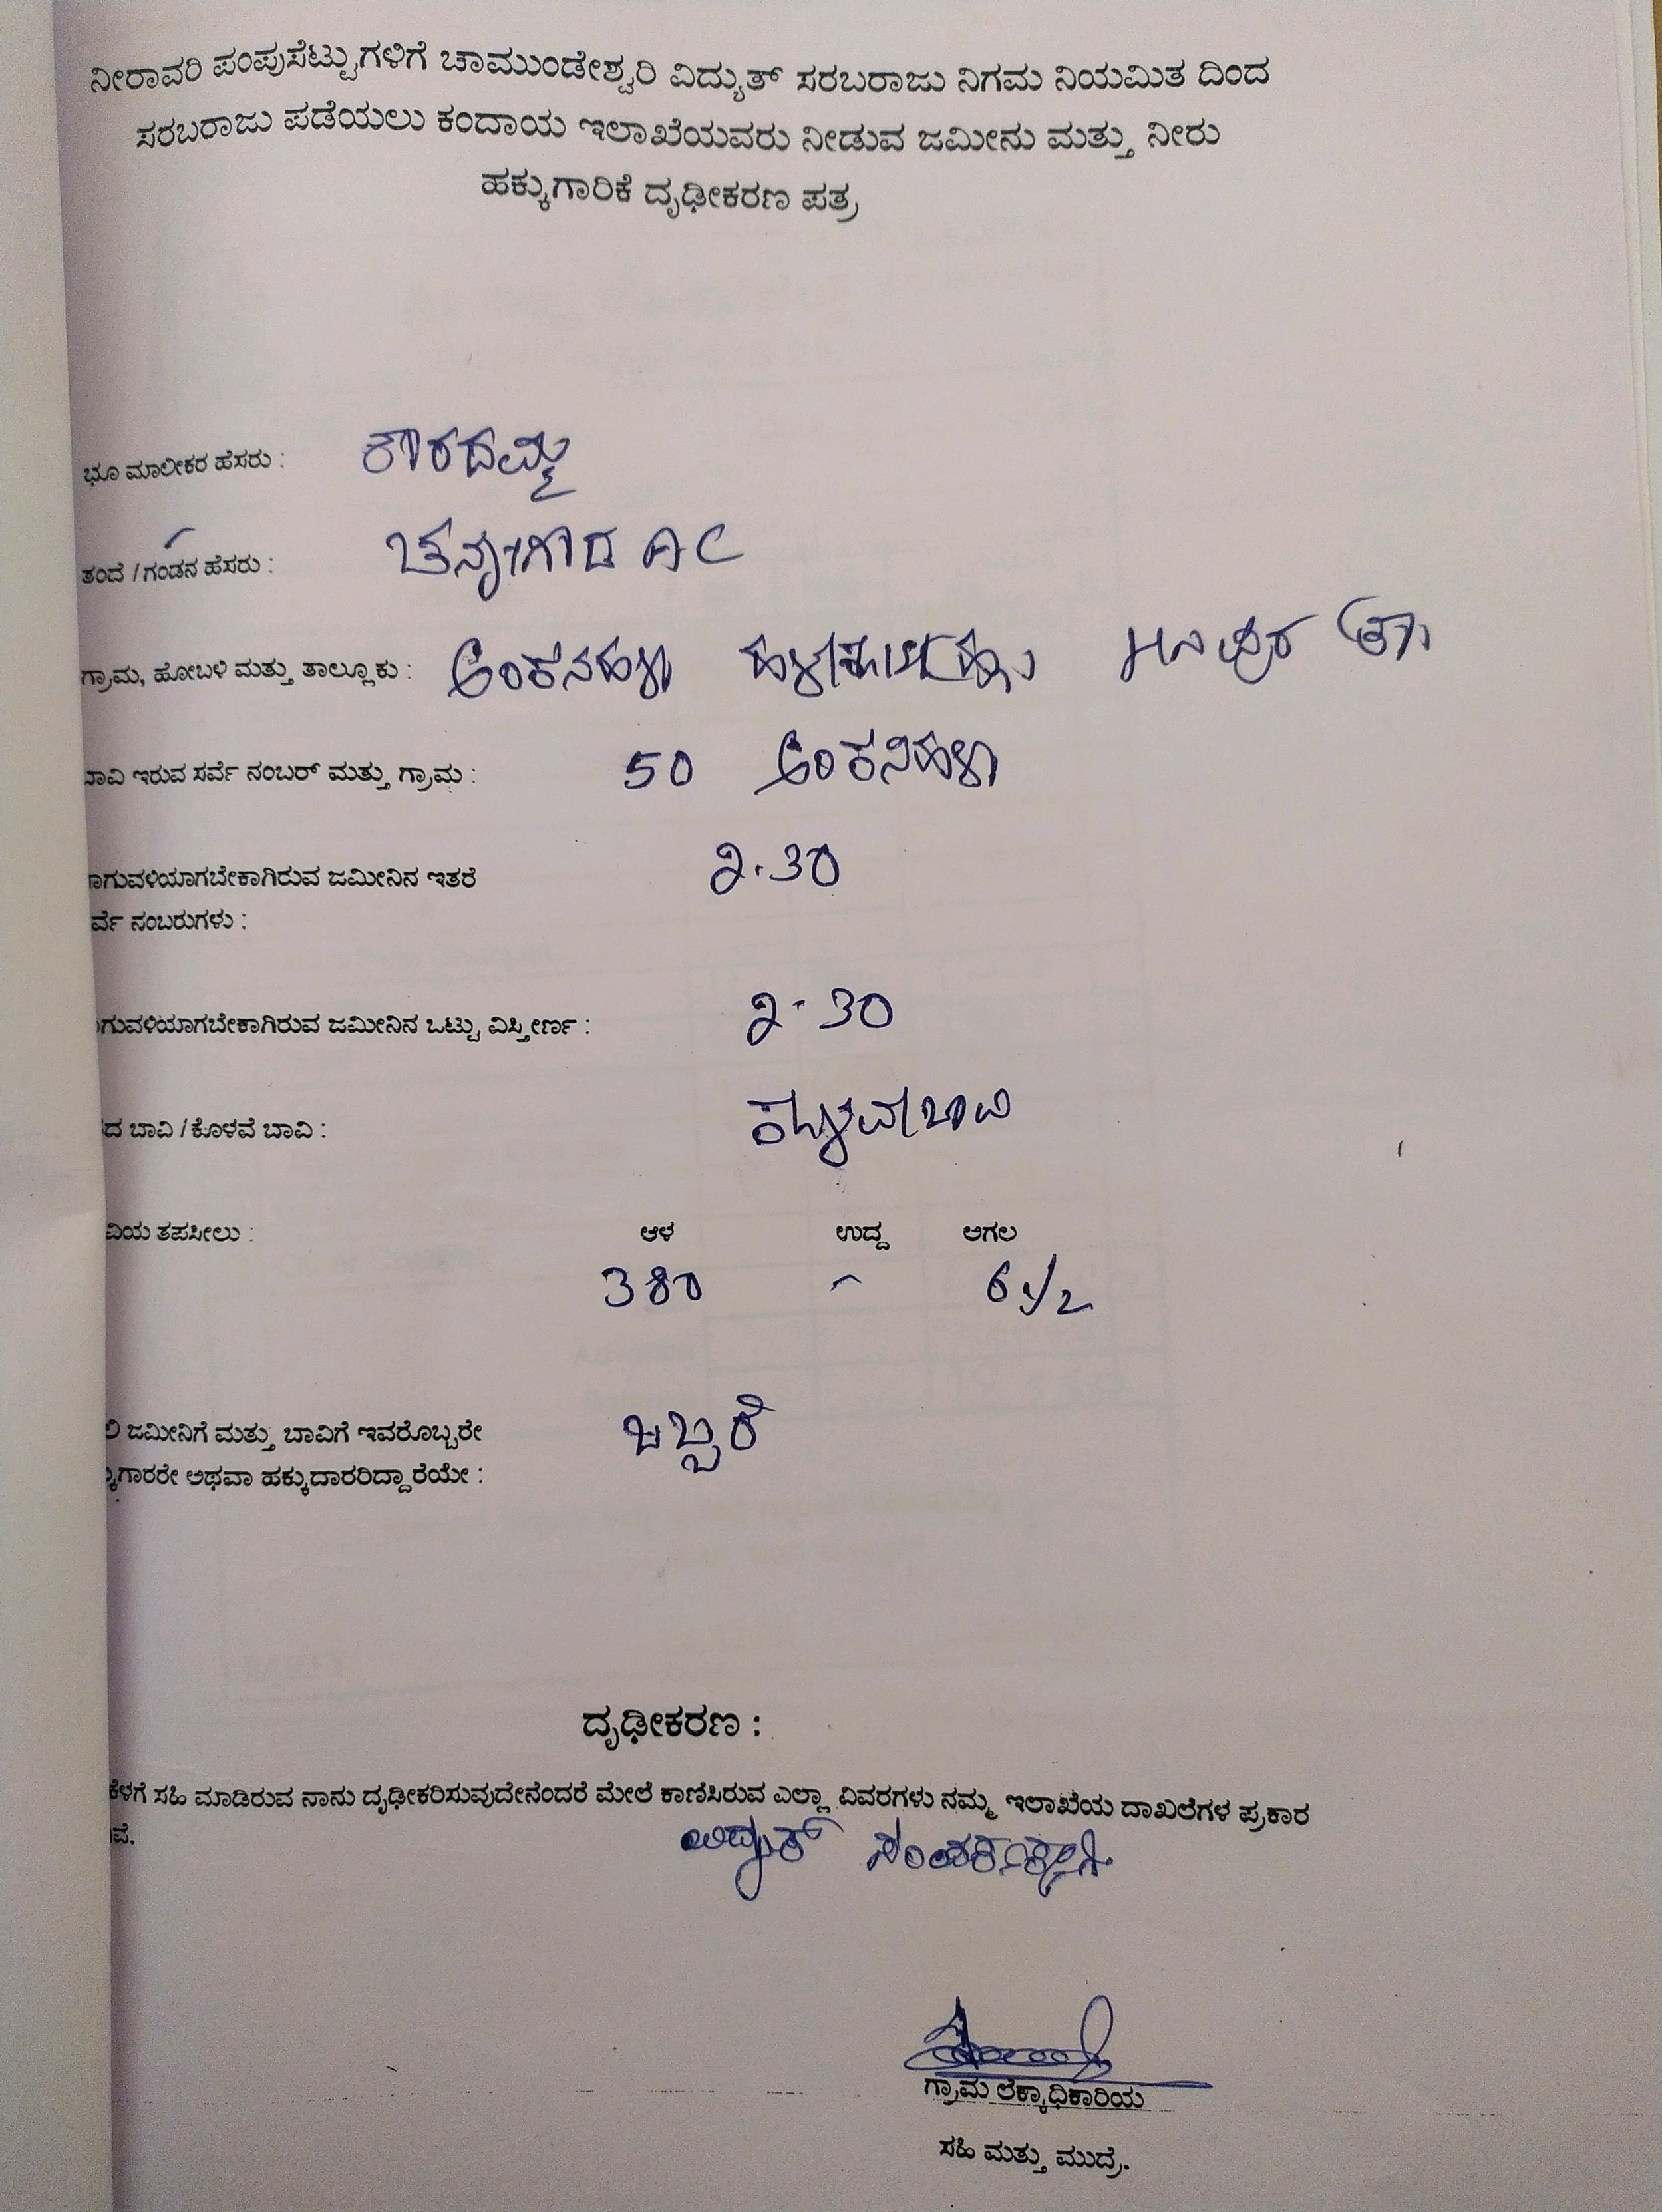 ನೀರಾವರಿ ಪಂಪುಸೆಟ್ಟುಗಳಿಗೆ ಚಾಮುಂಡೇಶ್ವರಿ ವಿದ್ಯುತ್ ಸರಬರಾಜು ನಿಗಮ ನಿಯಮಿತ ದಿಂದ
ಸರಬರಾಜು ಪಡೆಯಲು ಕಂದಾಯ ಇಲಾಖೆಯವರು ನೀಡುವ ಜಮೀನು ಮತ್ತು ನೀರು
ಹಕ್ಕುಗಾರಿಕೆ ದೃಢೀಕರಣ ಪತ್ರ
ಭೂ ಮಾಲೀಕರ ಹೆಸರು :
ತಂದೆ / ಗಂಡನ ಹೆಸರು : AC
ಗ್ರಾಮ, ಹೋಬಳಿ ಮತ್ತು ತಾಲ್ಲೂಕು : ಅಂಕನಹಳ್ಳಿ
ಬಾವಿ ಇರುವ ಸರ್ವೆ ನಂಬರ್ ಮತ್ತು ಗ್ರಾಮ : 50 ಅಂಕನಹಳ್ಳಿ
ಾಗುವಳಿಯಾಗಬೇಕಾಗಿರುವ ಜಮೀನಿನ ಇತರೆ 2.30
ರ್ವೆ ನಂಬರುಗಳು :
ಗುವಳಿಯಾಗಬೇಕಾಗಿರುವ ಜಮೀನಿನ ಒಟ್ಟು ವಿಸ್ತೀರ್ಣ : 2.30
ದ ಬಾವಿ / ಕೊಳವೆ ಬಾವಿ : ಕೊಳವೆ ಬಾವಿ
ವಿಯ ತಪಸೀಲು : ಆಳ ಉದ್ದ ಅಗಲ
380 - 6 1/2
ಜಮೀನಿಗೆ ಮತ್ತು ಬಾವಿಗೆ ಇವರೊಬ್ಬರೇ ಒಬ್ಬರೆ
ಗಾರರೇ ಅಥವಾ ಹಕ್ಕುದಾರರಿದ್ದಾರೆಯೇ :
ದೃಢೀಕರಣ :
ಕೆಳಗೆ ಸಹಿ ಮಾಡಿರುವ ನಾನು ದೃಢೀಕರಿಸುವುದೇನೆಂದರೆ ಮೇಲೆ ಕಾಣಿಸಿರುವ ಎಲ್ಲಾ ವಿವರಗಳು ನಮ್ಮ ಇಲಾಖೆಯ ದಾಖಲೆಗಳ ಪ್ರಕಾರ
ವೆ.
ವಿದ್ಯುತ್ ಸಂಪರ್ಕಕ್ಕಾಗಿ
ಗ್ರಾಮ ಲೆಕ್ಕಾಧಿಕಾರಿಯ
ಸಹಿ ಮತ್ತು ಮುದ್ರೆ.